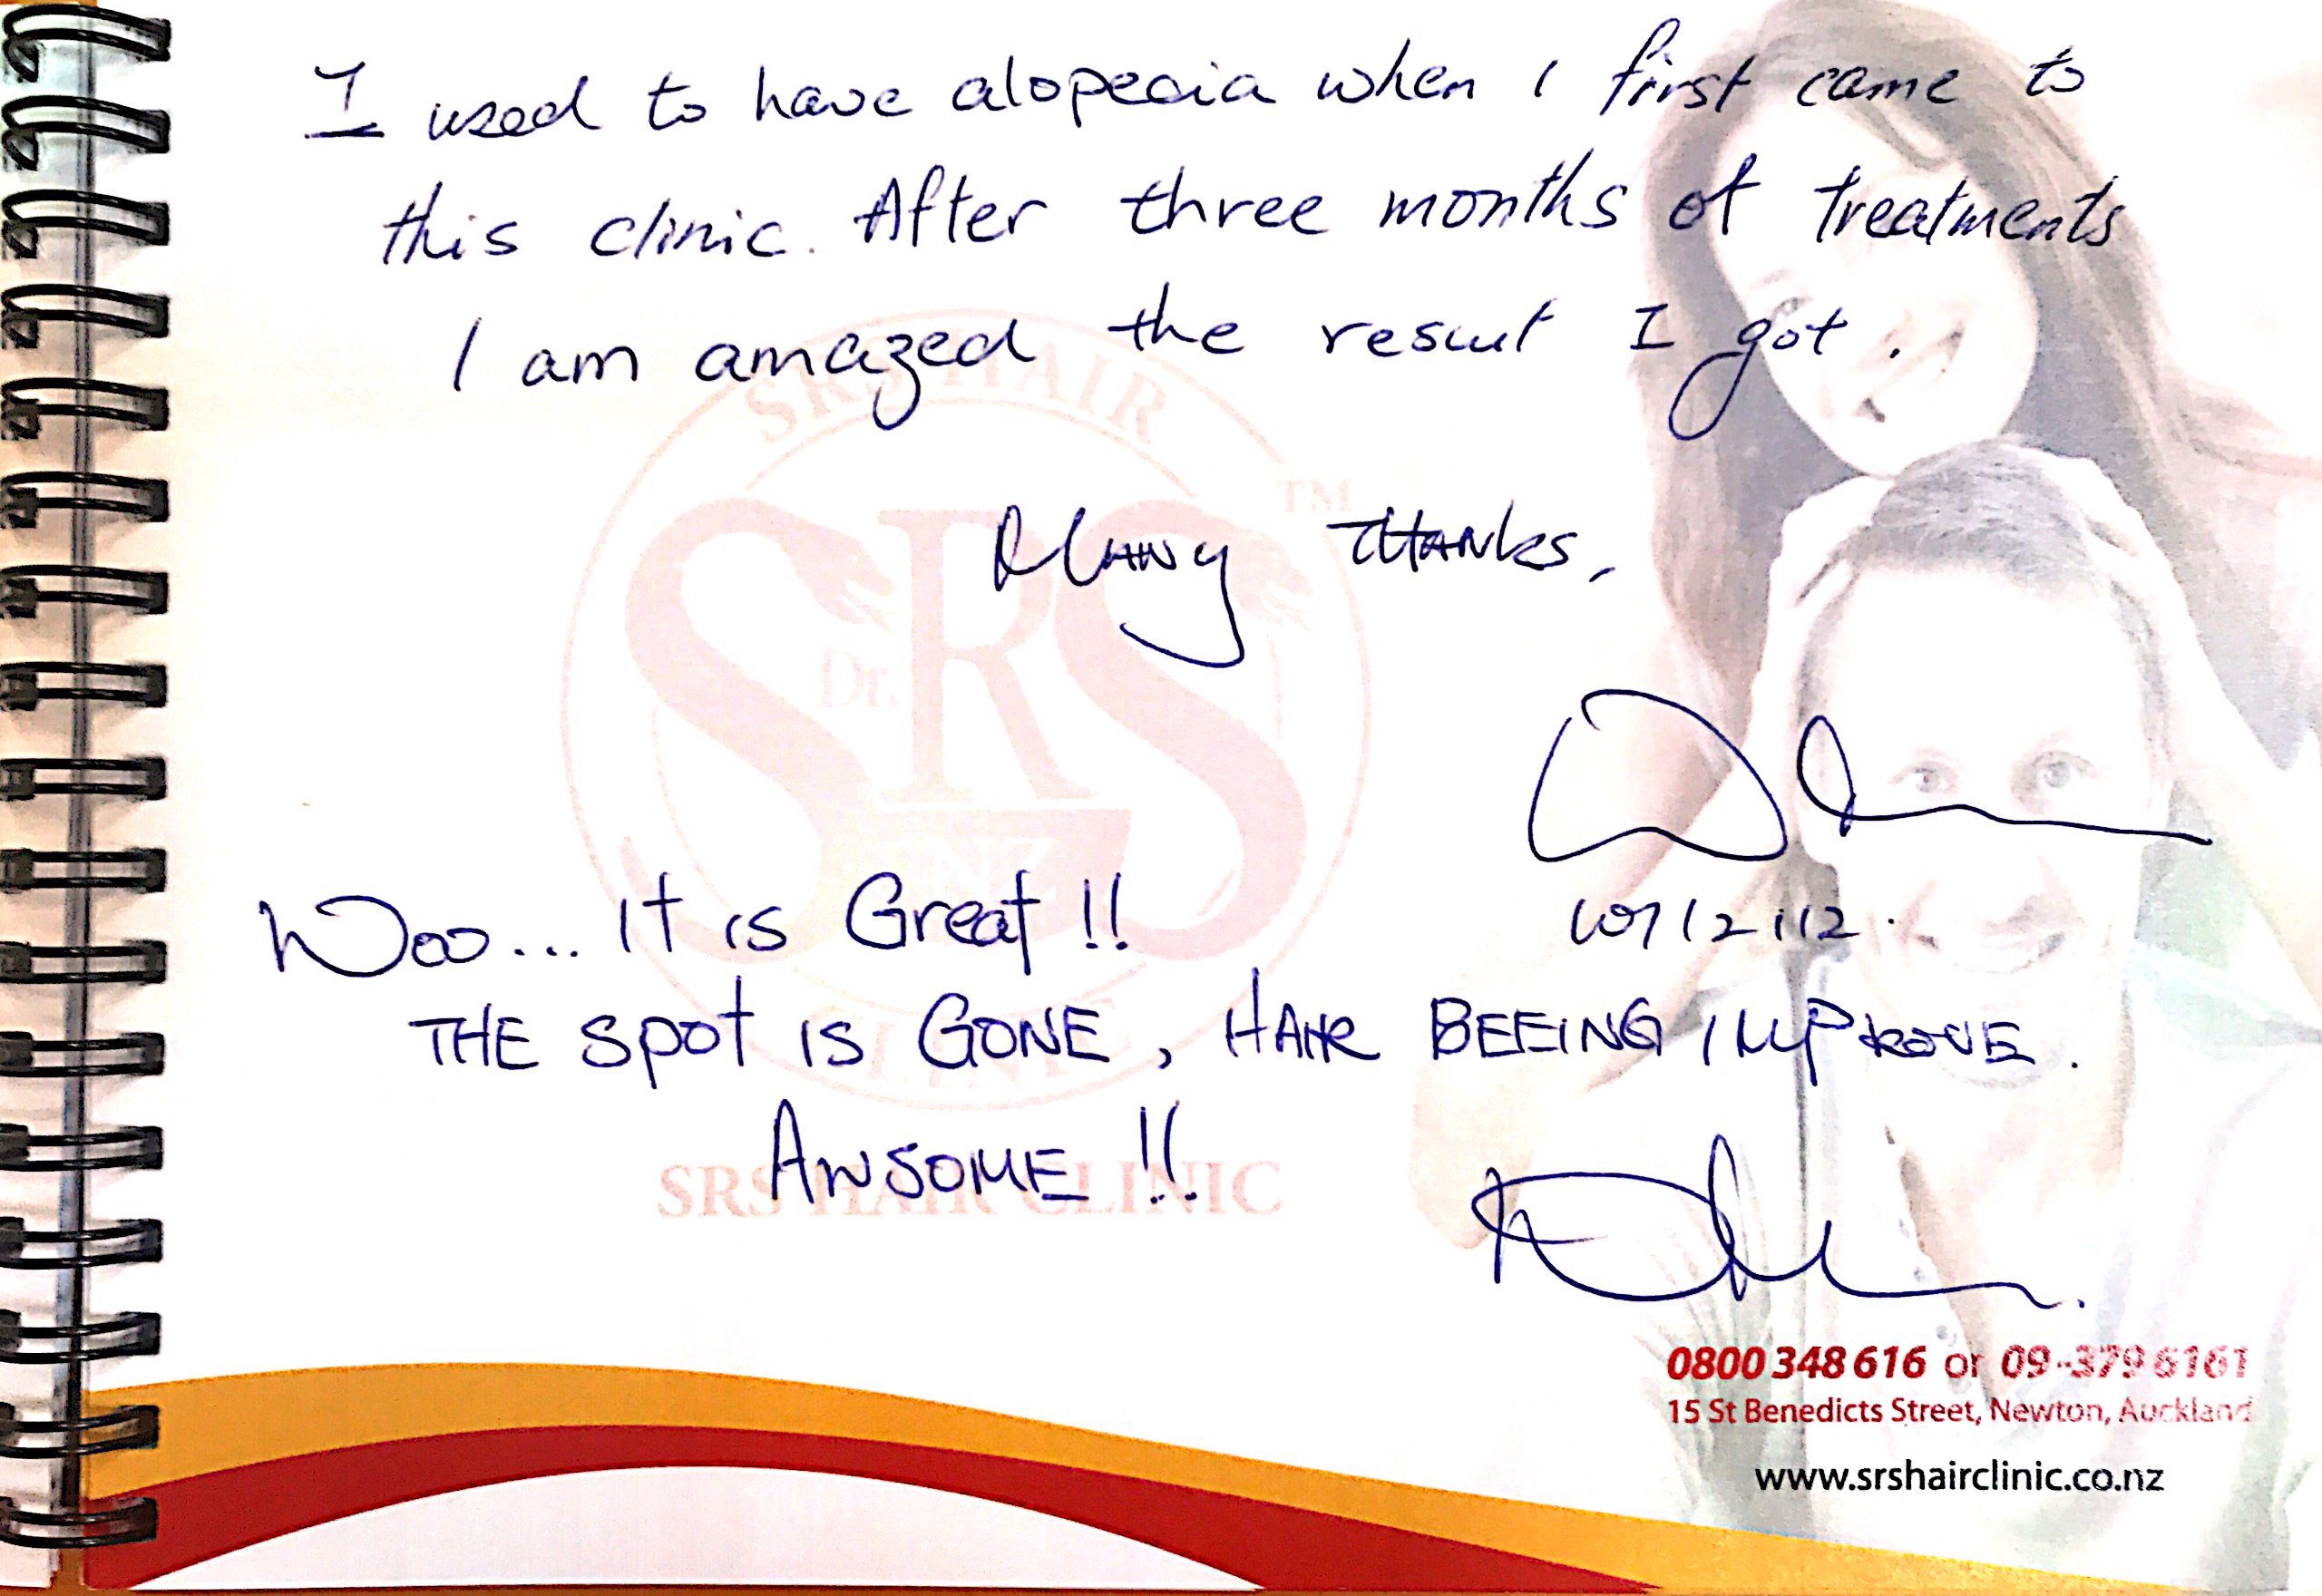 I used to have alopecia when I first came to
this clinic. After three months of treatments
I am amazed the result I got.
SRS HAIR
TM
Many THANks,
Dr.
SRS
NZ
Woo... It is Great !!
THE spot is GONE, HAIR BEEING IMPROVE.
CLINIC
AWSOME !!
SRS HAIR CLINIC
0800 348 616 or 09-379 6161
15 St Benedicts Street, Newton, Auckland
www.srshairclinic.co.nz